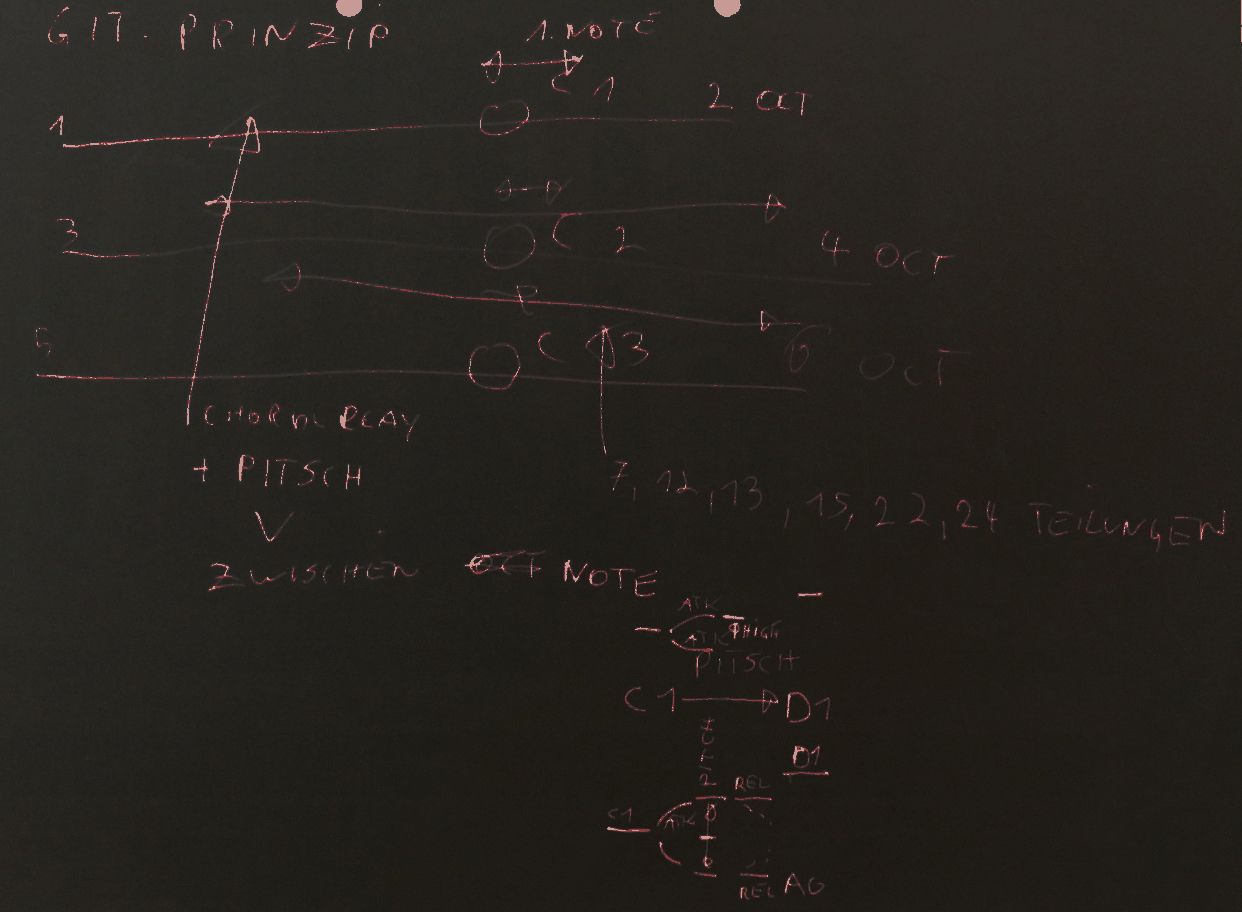 GIT. PRINZIP
1. NOTE
1 C 1 2 OCT
3 C 2 4 OCT
5 C 3 6 OCT
CHORD PLAY
+ PITSCH
7, 12, 13, 15, 22, 24 TEILUNGEN
V
ZWISCHEN OCT NOTE
ATK
ATK HIGH
PITSCH
C1 D1
PITCH
D1
REL
C1 ATK
REL AG